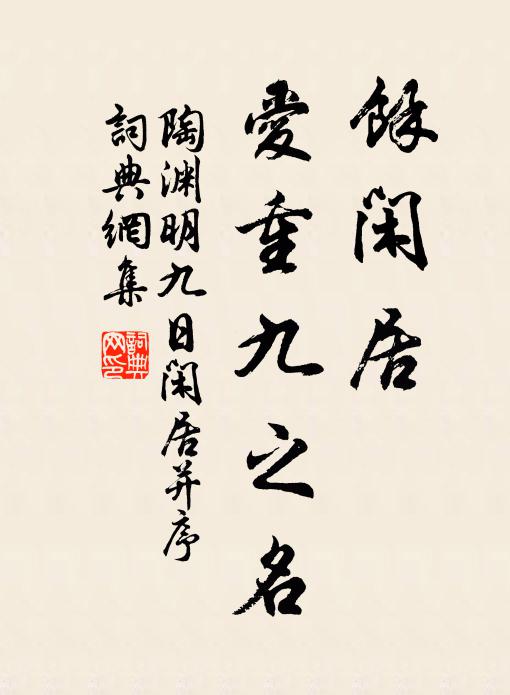 餘閑居
愛重九之名
陶渊明九日閑居并序
詞典網集
詞典网印